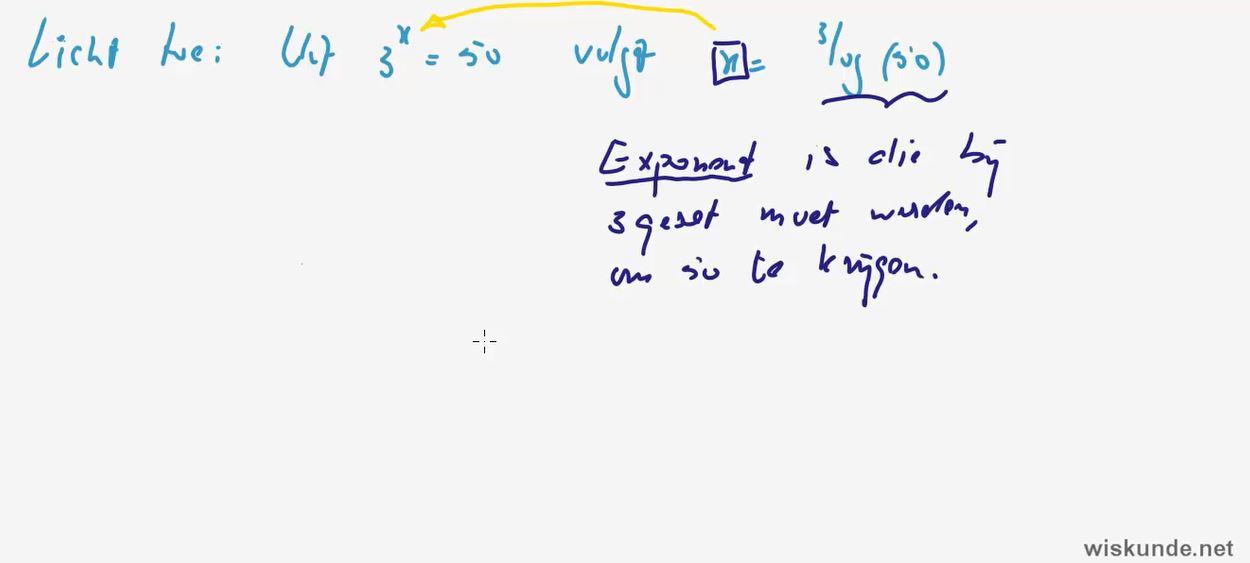 Licht toe: Uit 3ˣ = 50 volgt x = ³log (50)
Exponent is die bij
3 gezet moet worden,
om 50 te krijgen.
wiskunde.net